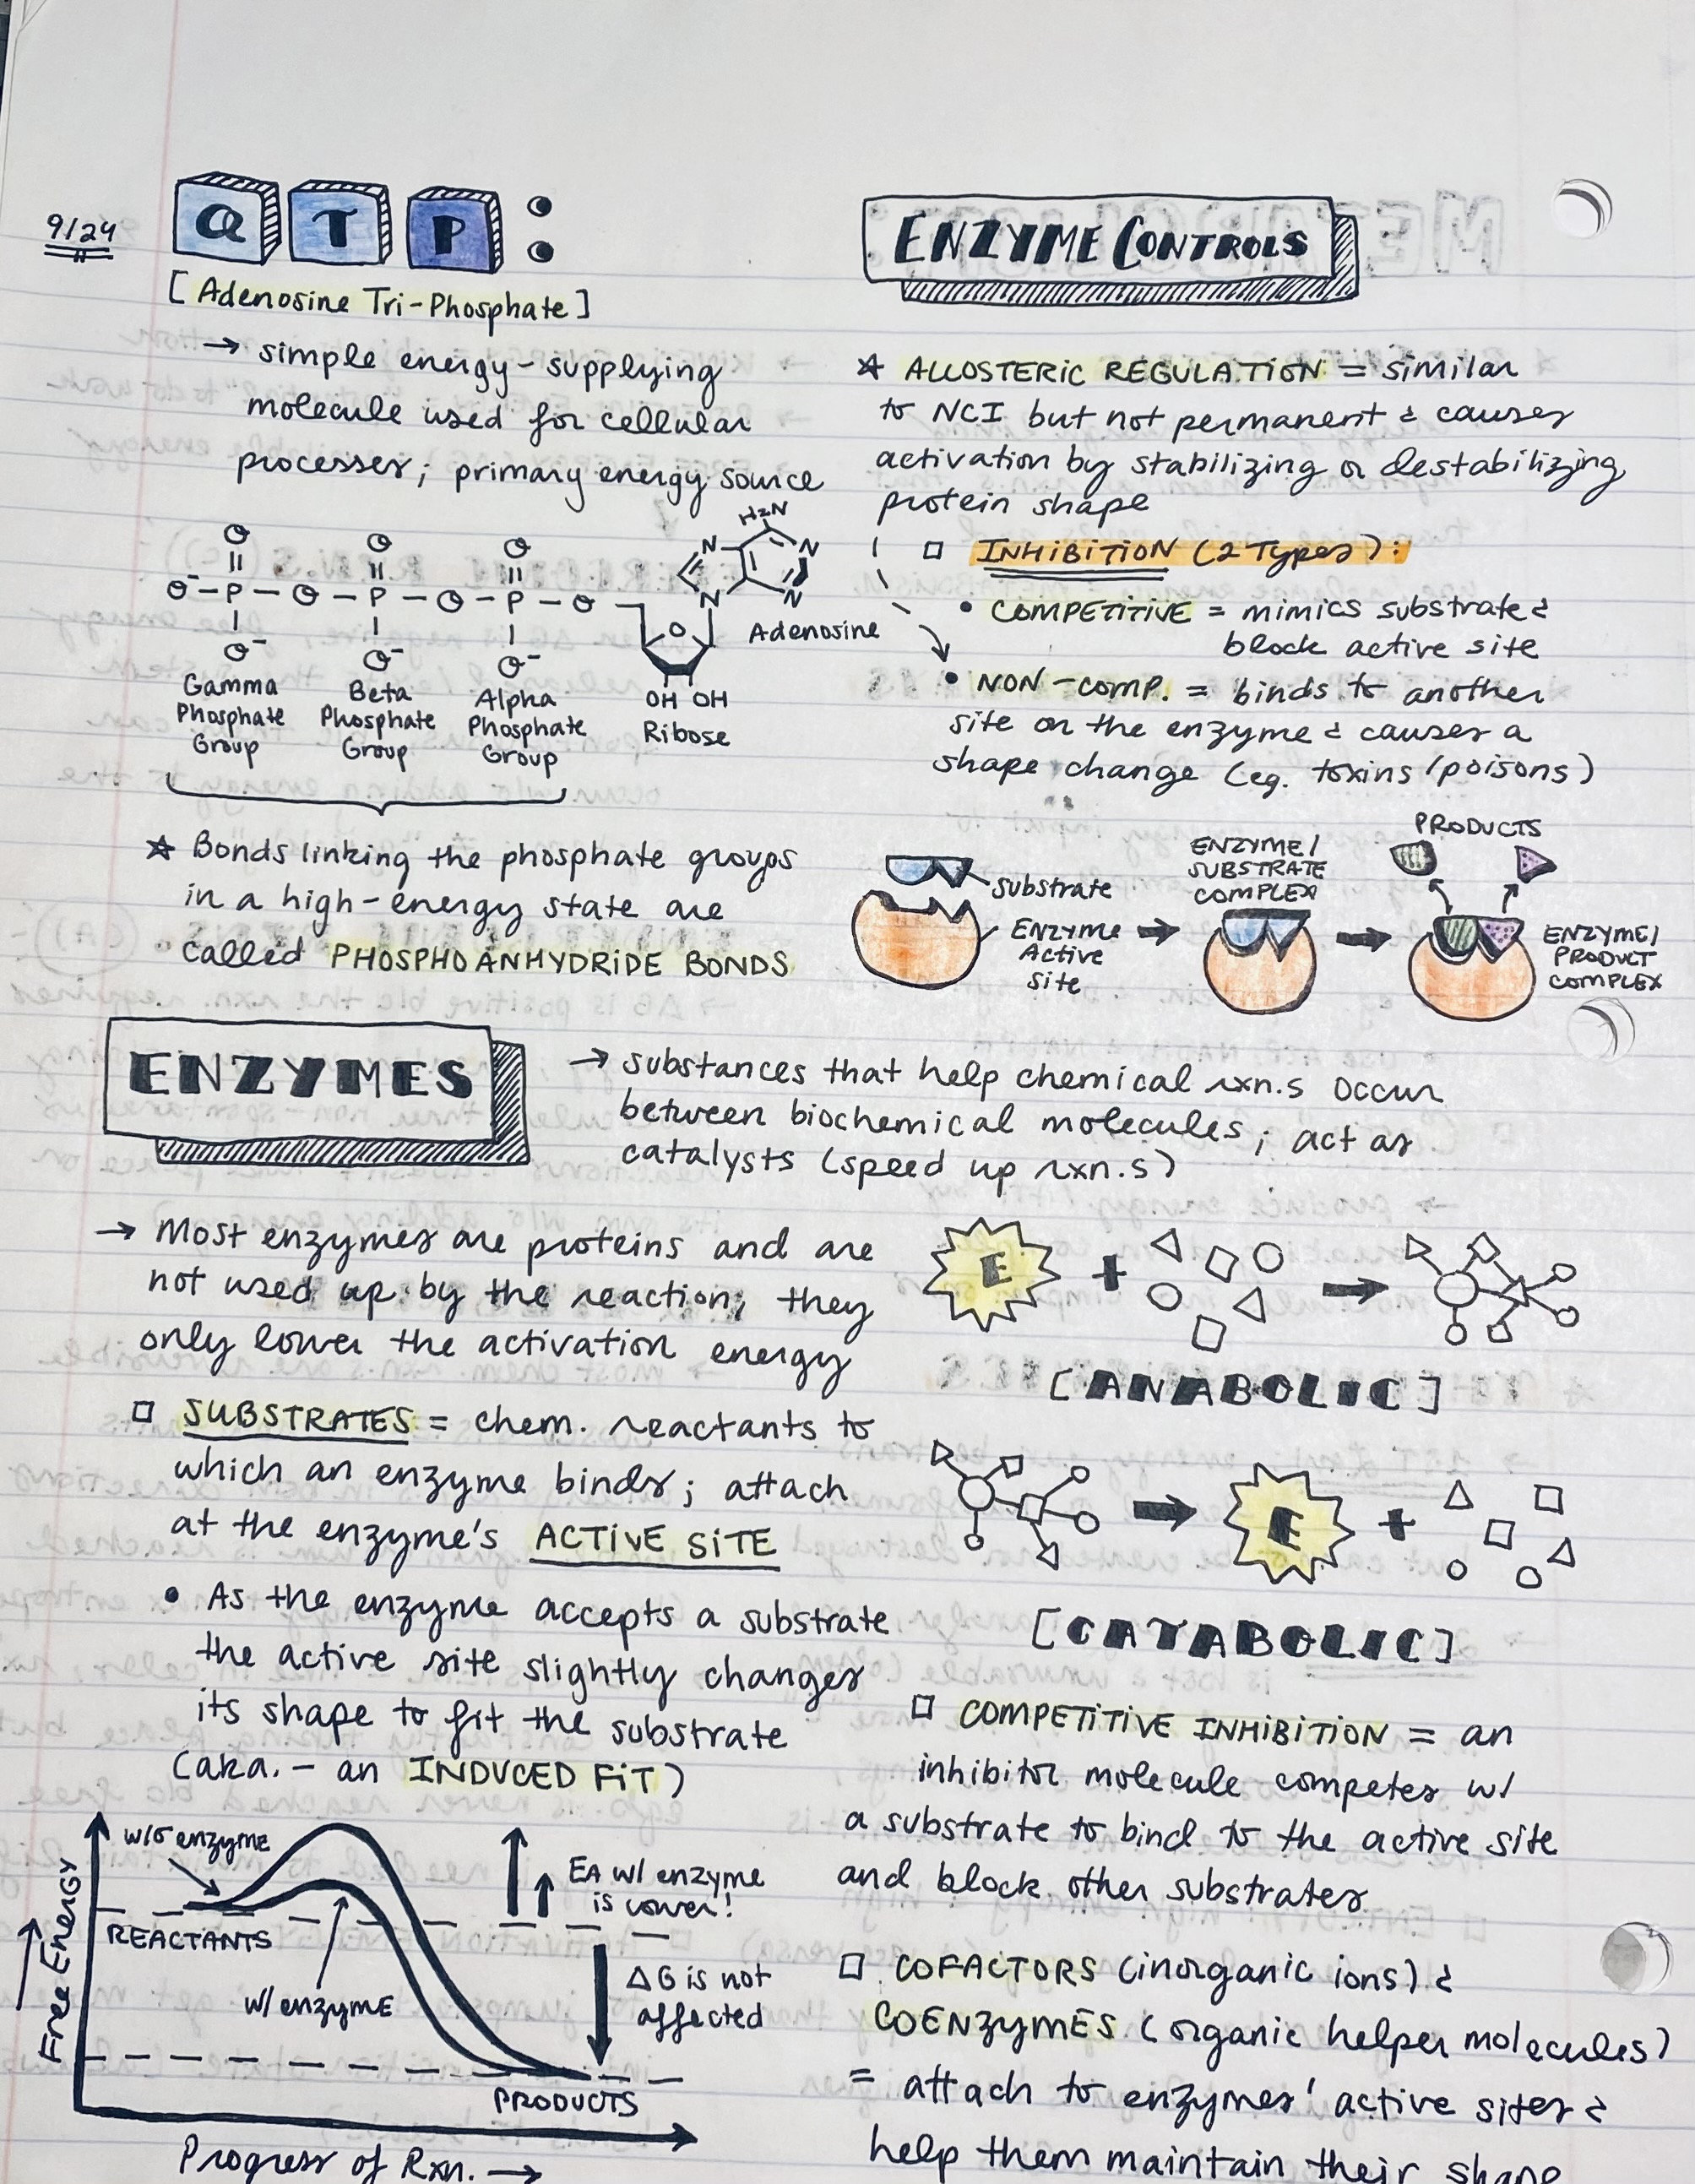 9/24
ATP:
[Adenosine Tri-Phosphate]
→ simple energy-supplying
molecule used for cellular
processes; primary energy source
H2N
N
N
N
N
O
O
O
O⁻-P-O-P-O-P-O
O⁻
O⁻
O⁻
O
Adenosine
OH OH
Ribose
Gamma
Phosphate
Group
Beta
Phosphate
Group
Alpha
Phosphate
Group
☆ Bonds linking the phosphate groups
in a high-energy state are
called PHOSPHOANHYDRIDE BONDS
ENZYMES
→ substances that help chemical rxn.s occur
between biochemical molecules; act as
catalysts (speed up rxn.s)
→ Most enzymes are proteins and are
not used up by the reaction; they
only lower the activation energy
□ SUBSTRATES = chem. reactants to
which an enzyme binds; attach
at the enzyme's ACTIVE SITE
• As the enzyme accepts a substrate
the active site slightly changes
its shape to fit the substrate
(aka. - an INDUCED FIT)
w/o enzyme
REACTANTS
w/ enzyme
EA w/ enzyme
is lower!
ΔG is not
affected
PRODUCTS
Free Energy →
Progress of Rxn. →
ENZYME CONTROLS
☆ ALLOSTERIC REGULATION = similar
to NCI but not permanent & causes
activation by stabilizing or destabilizing
protein shape
□ INHIBITION (2 Types):
• COMPETITIVE = mimics substrate &
block active site
• NON-COMP. = binds to another
site on the enzyme & causes a
shape change (eg. toxins/poisons)
substrate
ENZYME
Active
Site
ENZYME/
SUBSTRATE
COMPLEX
PRODUCTS
ENZYME/
PRODUCT
COMPLEX
E + →
[ANABOLIC]
→ E +
[CATABOLIC]
□ COMPETITIVE INHIBITION = an
inhibitor molecule competes w/
a substrate to bind to the active site
and block other substrates
□ COFACTORS (inorganic ions) &
COENZYMES (organic helper molecules)
= attach to enzymes' active sites &
help them maintain their shape